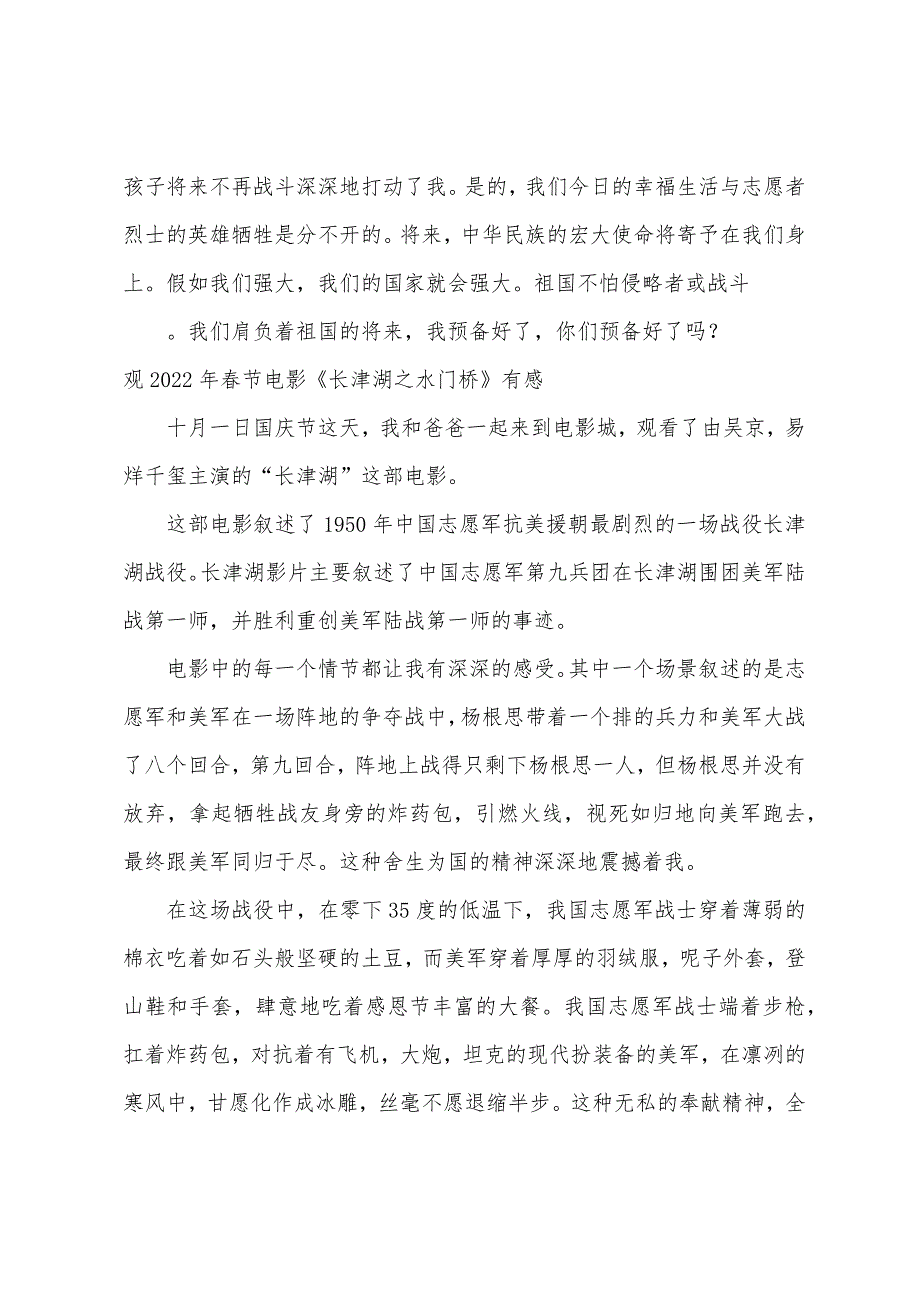 孩子将来不再战斗深深地打动了我。是的，我们今日的幸福生活与志愿者
烈士的英雄牺牲是分不开的。将来，中华民族的宏大使命将寄予在我们身
上。假如我们强大，我们的国家就会强大。祖国不怕侵略者或战斗
。我们肩负着祖国的将来，我预备好了，你们预备好了吗？
观 2022 年春节电影《长津湖之水门桥》有感
十月一日国庆节这天，我和爸爸一起来到电影城，观看了由吴京，易
烊千玺主演的“长津湖”这部电影。
这部电影叙述了 1950 年中国志愿军抗美援朝最剧烈的一场战役长津
湖战役。长津湖影片主要叙述了中国志愿军第九兵团在长津湖围困美军陆
战第一师，并胜利重创美军陆战第一师的事迹。
电影中的每一个情节都让我有深深的感受。其中一个场景叙述的是志
愿军和美军在一场阵地的争夺战中，杨根思带着一个排的兵力和美军大战
了八个回合，第九回合，阵地上战得只剩下杨根思一人，但杨根思并没有
放弃，拿起牺牲战友身旁的炸药包，引燃火线，视死如归地向美军跑去，
最终跟美军同归于尽。这种舍生为国的精神深深地震撼着我。
在这场战役中，在零下 35 度的低温下，我国志愿军战士穿着薄弱的
棉衣吃着如石头般坚硬的土豆，而美军穿着厚厚的羽绒服，呢子外套，登
山鞋和手套，肆意地吃着感恩节丰富的大餐。我国志愿军战士端着步枪，
扛着炸药包，对抗着有飞机，大炮，坦克的现代扮装备的美军，在凛冽的
寒风中，甘愿化作成冰雕，丝毫不愿退缩半步。这种无私的奉献精神，全